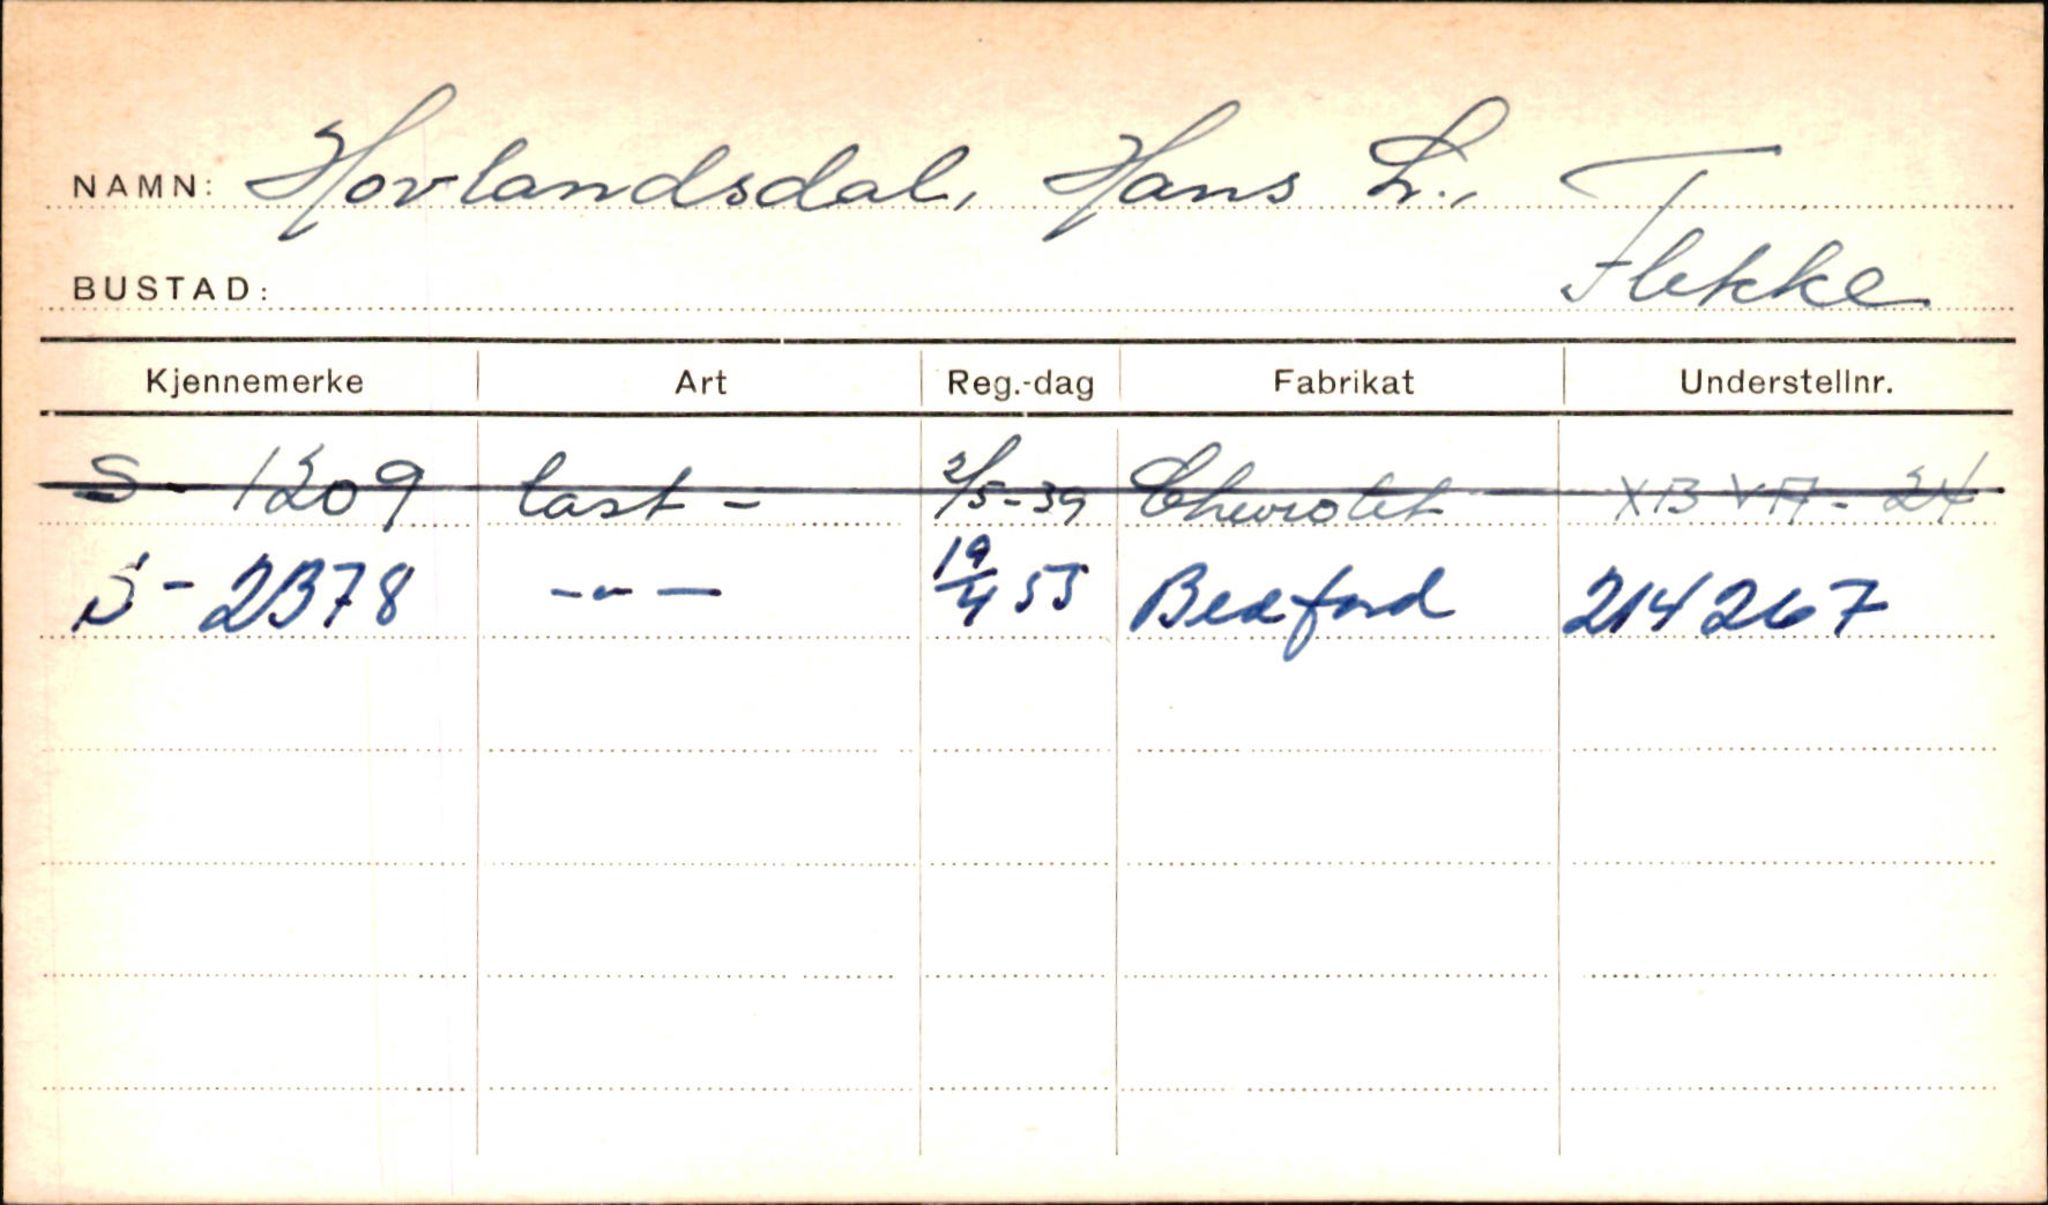 NAMN: Hovlandsdal, Hans L.,
BUSTAD: Flekke
Kjennemerke Art Reg.-dag Fabrikat Understellnr.
S - 1209 last - 2/5-39 Chevrolet XB VA - 24
S - 2378 -"- 19/4 55 Bedford 214267